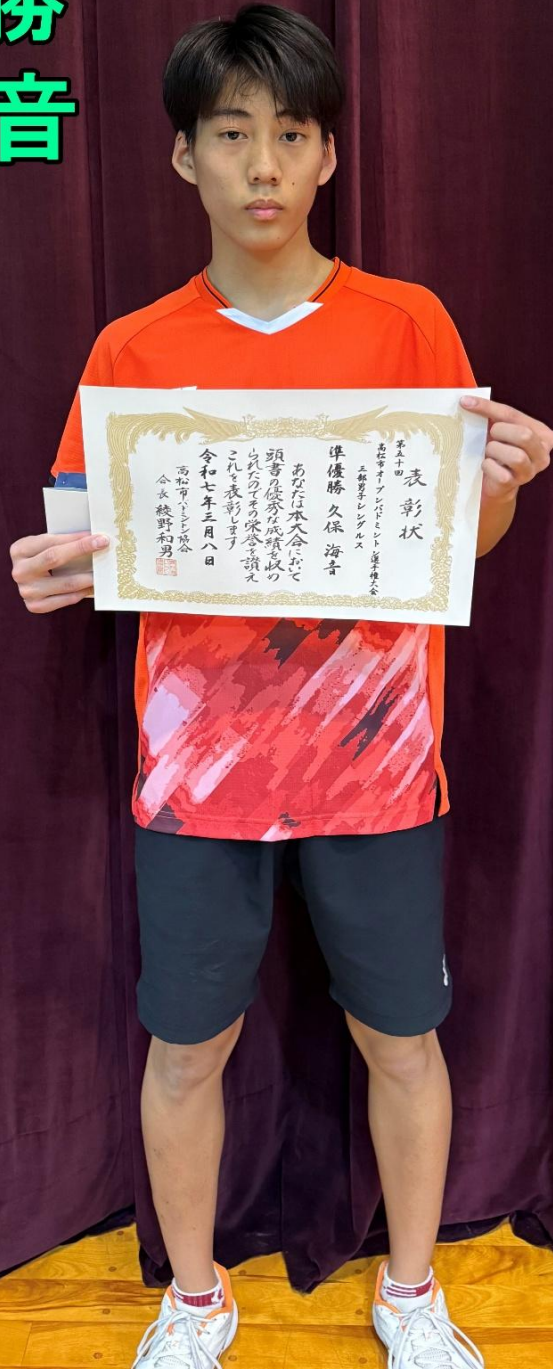 勝
音
表彰状
第五十回
高松市オープンバドミントン選手権大会
三部男子シングルス
準優勝 久保 海音
あなたは本大会において
頭書の優秀な成績を収め
られたのでその栄誉を讃え
これを表彰します
令和七年三月八日
高松市バドミントン協会
会長 綾野和男